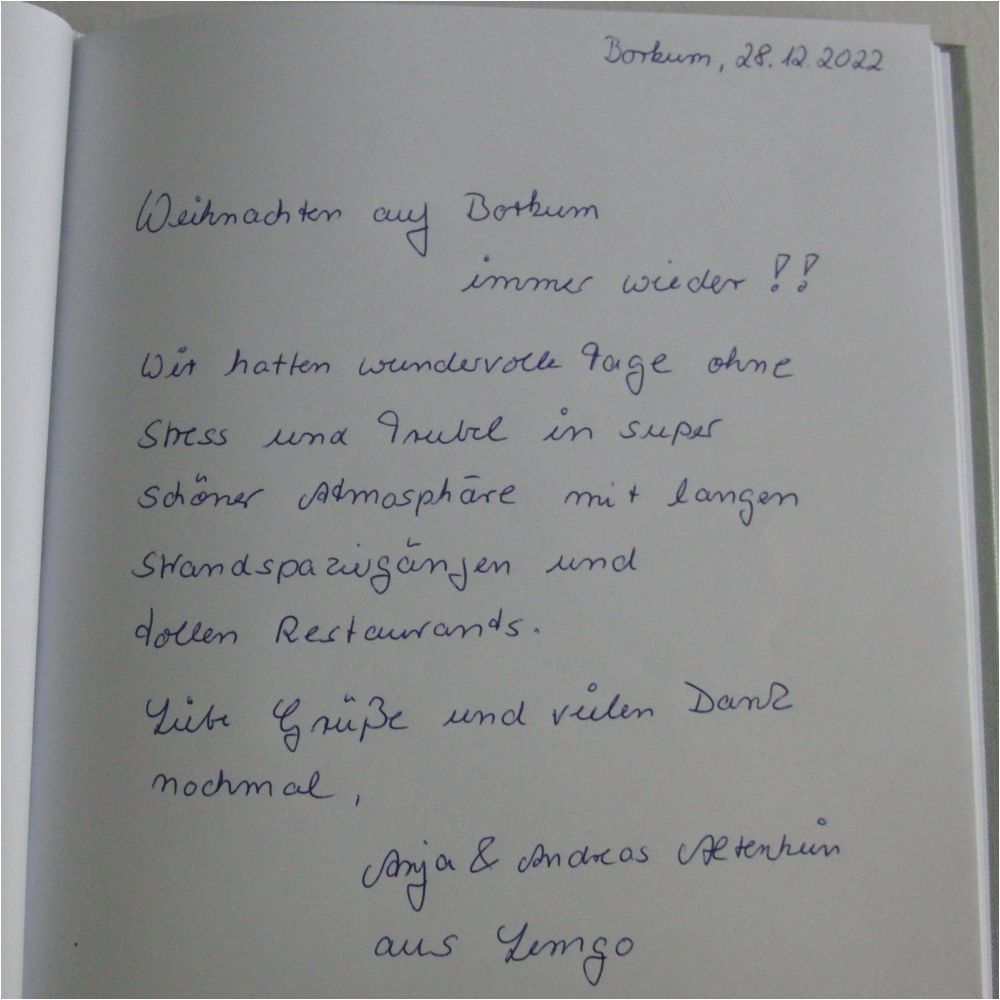 Borkum, 28.12.2022
Weihnachten auf Borkum
immer wieder !!
Wir hatten wundervolle Tage ohne
Stress und Trubel in super
schöner Atmosphäre mit langen
Strandspaziergängen und
tollen Restaurants.
Liebe Grüße und vielen Dank
nochmal,
Anja & Andreas
aus Lemgo